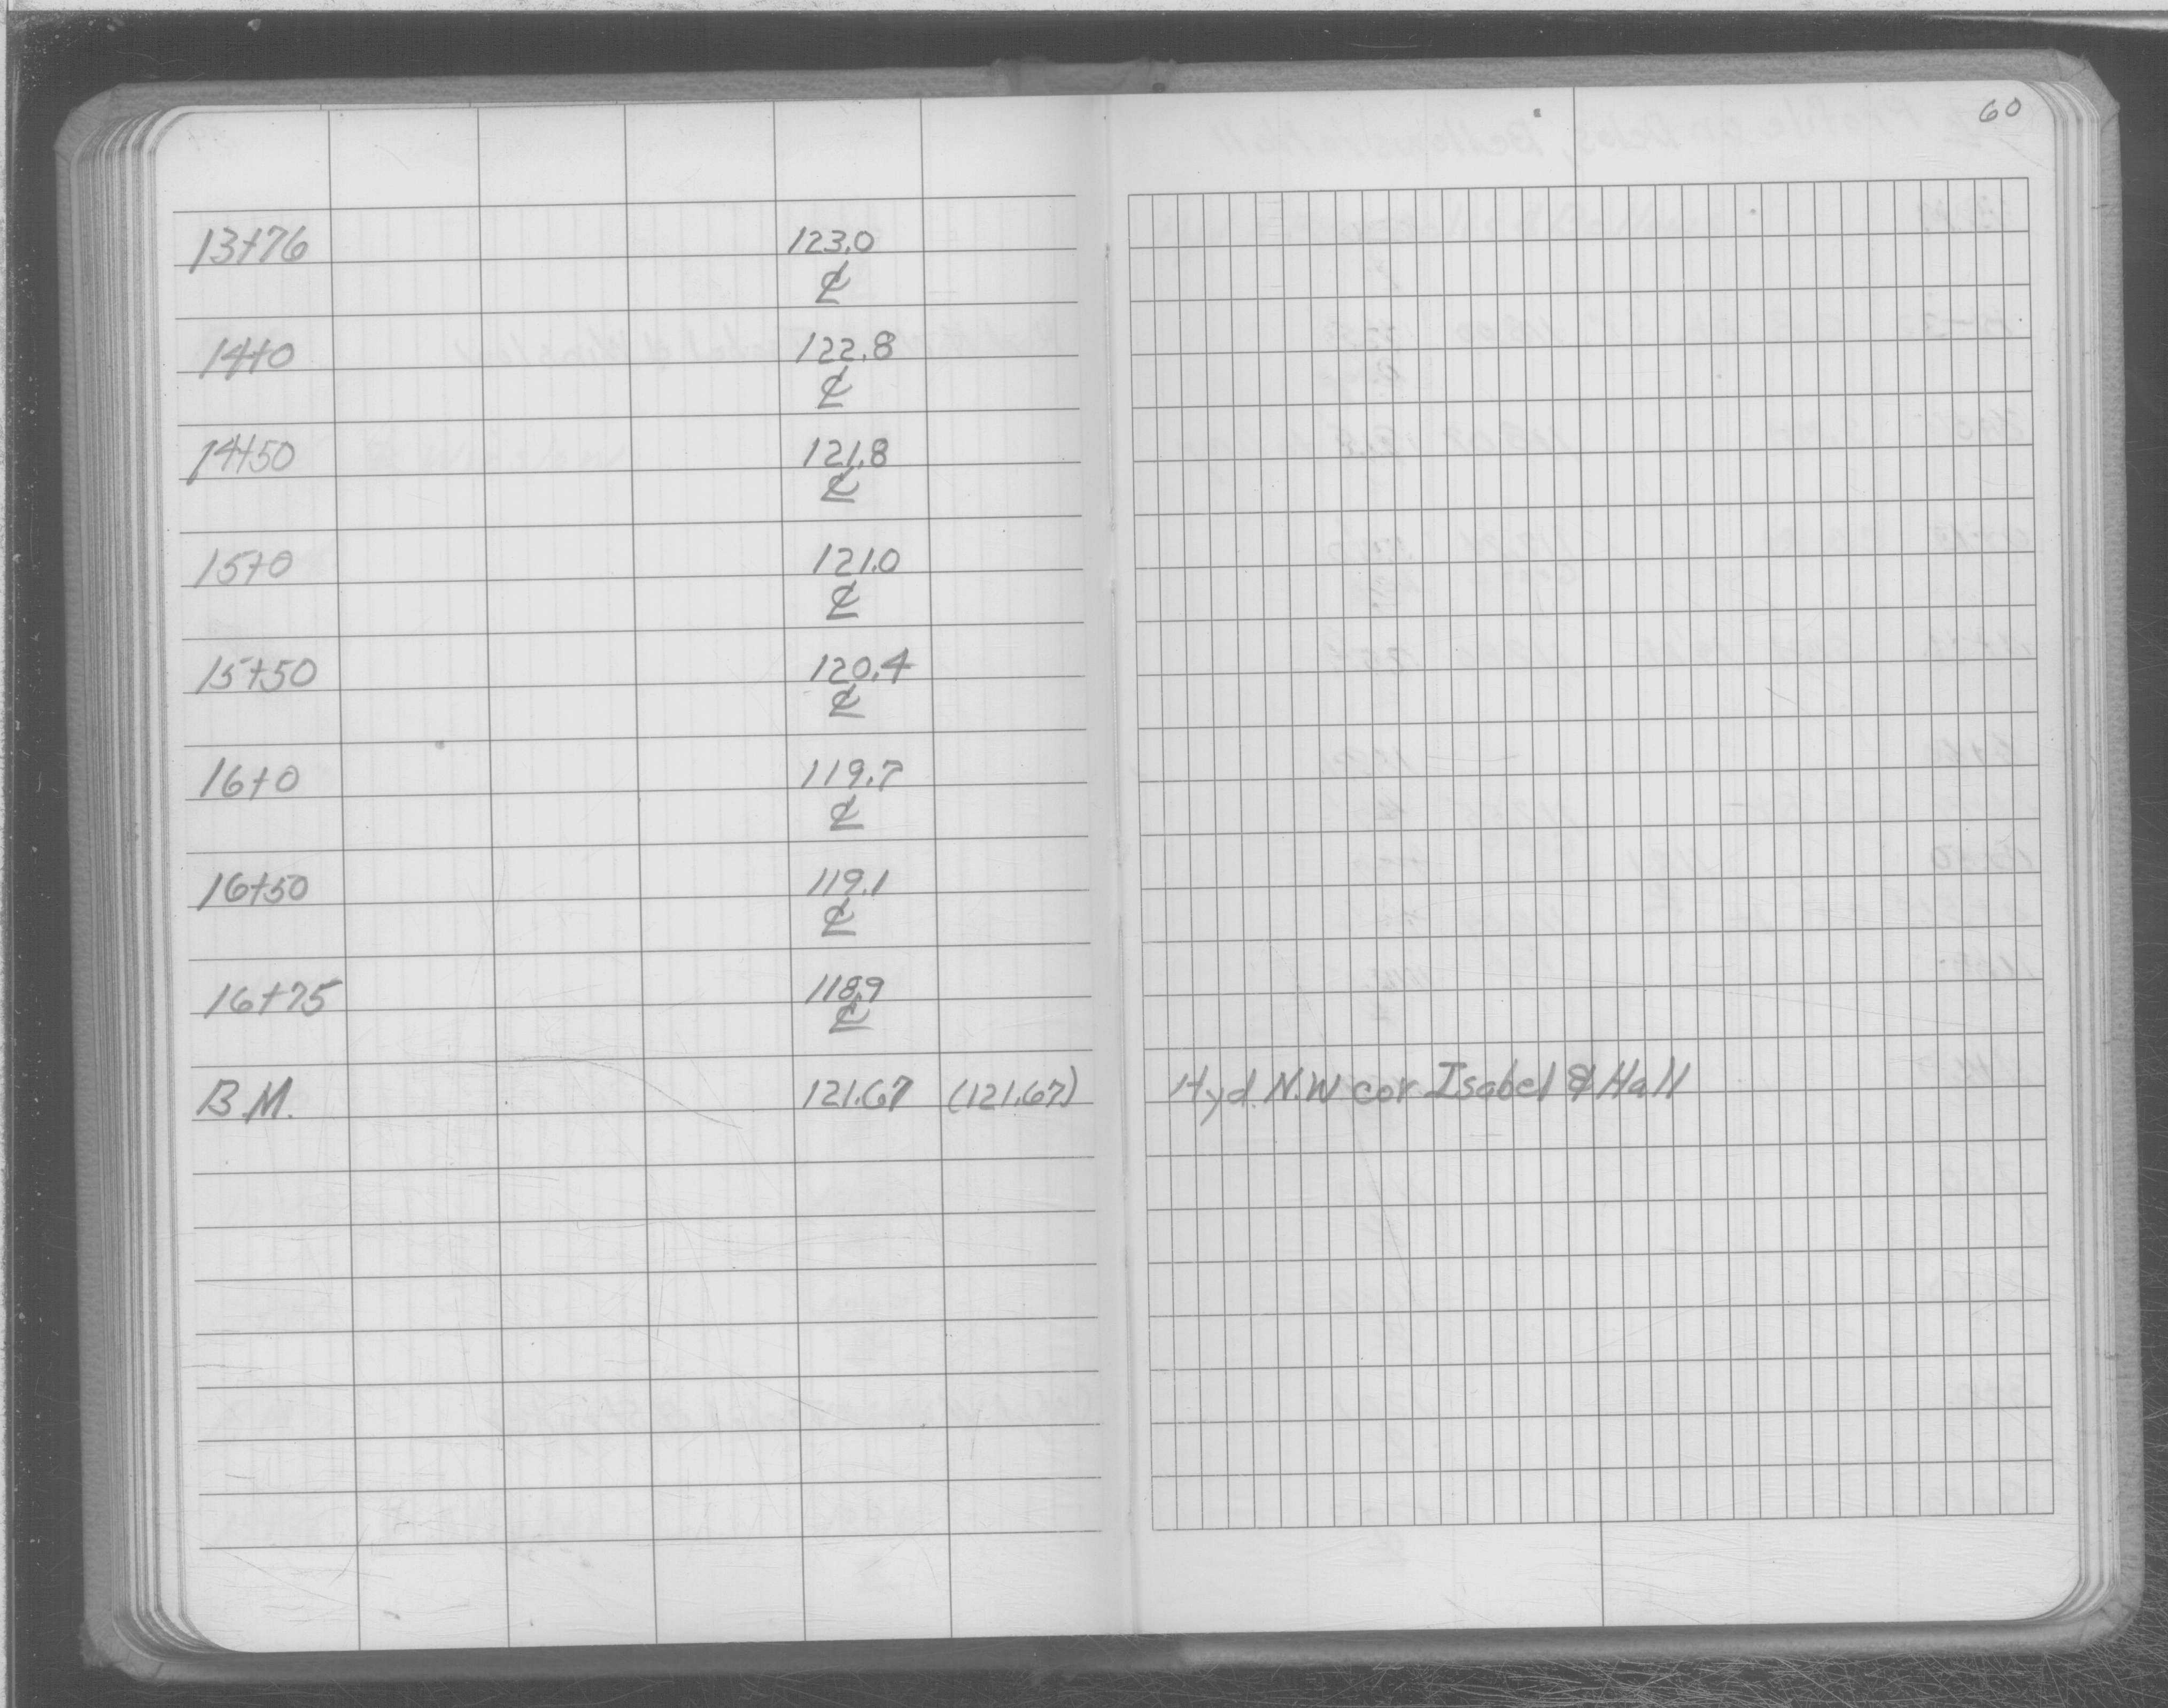 60
13+76 123.0
℄
14+0 122.8
℄
14+50 121.8
℄
15+0 121.0
℄
15+50 120.4
℄
16+0 119.7
℄
16+50 119.1
℄
16+75 118.9
℄
B.M. 121.67 (121.67) Hyd. N.W cor Isabel & Hall